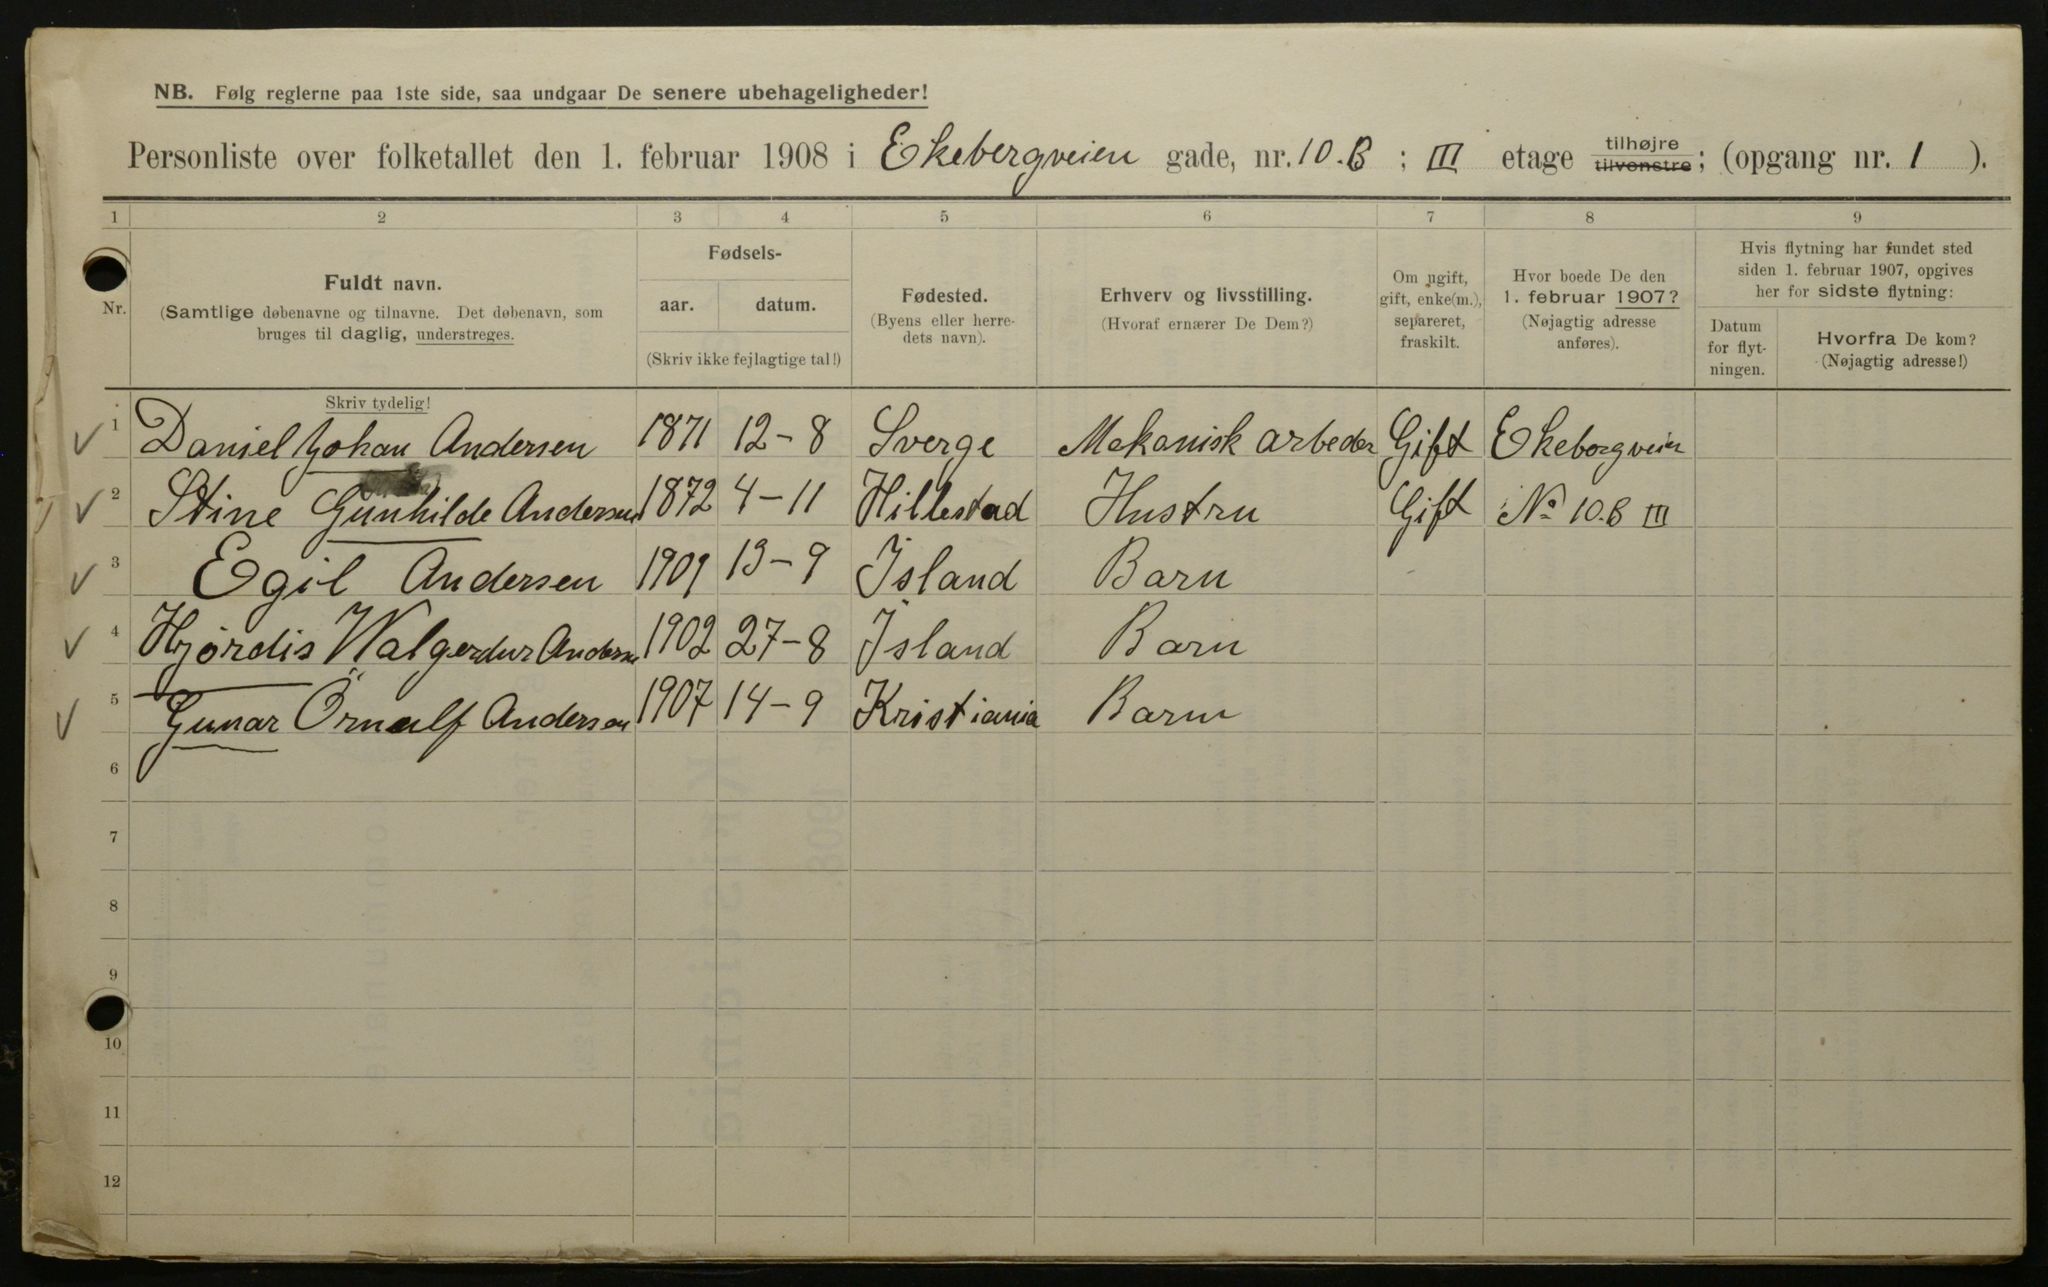 NB. Følg reglerne paa 1ste side, saa undgaar De senere ubehageligheder!
Personliste over folketallet den 1. februar 1908 i Ekebergveien gade, nr. 10.B ; III etage tilhøjre tilvenstre; (opgang nr. 1 ).
1 2 3 4 5 6 7 8 9
Nr.
Fuldt navn.
(Samtlige døbenavne og tilnavne. Det døbenavn, som
bruges til daglig, understreges.
Fødsels-
aar. datum.
(Skriv ikke fejlagtige tal!)
Fødested.
(Byens eller herre-
dets navn).
Erhverv og livsstilling.
(Hvoraf ernærer De Dem?)
Om ugift,
gift, enke(m.),
separeret,
fraskilt.
Hvor boede De den
1. februar 1907?
(Nøjagtig adresse
anføres).
Hvis flytning har fundet sted
siden 1. februar 1907, opgives
her for sidste flytning:
Datum
for flyt-
ningen.
Hvorfra De kom?
(Nøjagtig adresse!)
Skriv tydelig!
1 Daniel Johan Andersen 1871 12-8 Sverge Mekanisk arbeder Gift Ekebergveien
2 Stine Gunhilde Andersen 1872 4-11 Hillestad Hustru Gift No 10.B III
3 Egil Andersen 13-9 Island Barn
4 Hjördis Walgerdur Andersen 1902 27-8 Island Barn
5 Gunar Örnulf Andersen 1907 14-9 Kristiania Barn
6
7
8
9
10
11
12